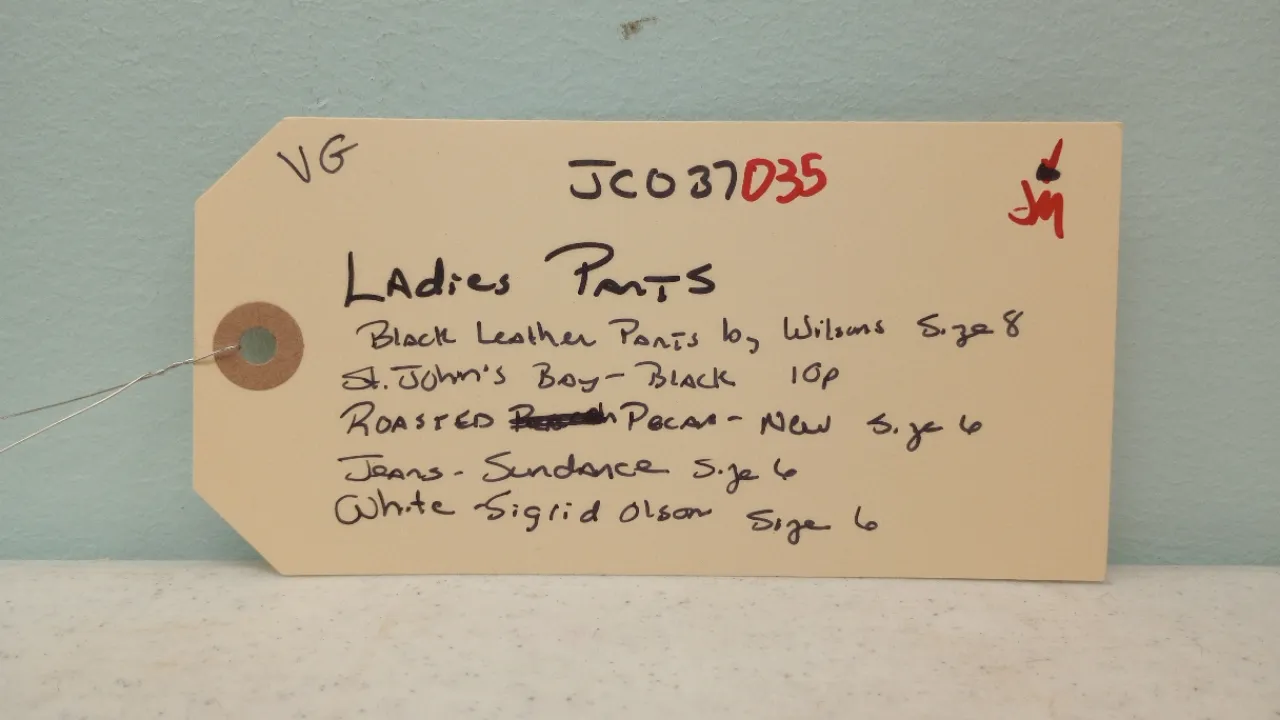 VG
JC037035
JM
Ladies Pants
Black Leather Pants by Wilsons Size 8
St. John's Bay - Black 10p
Roasted Pecan - New Size 6
Jeans - Sundance Size 6
White Sigrid Olson Size 6